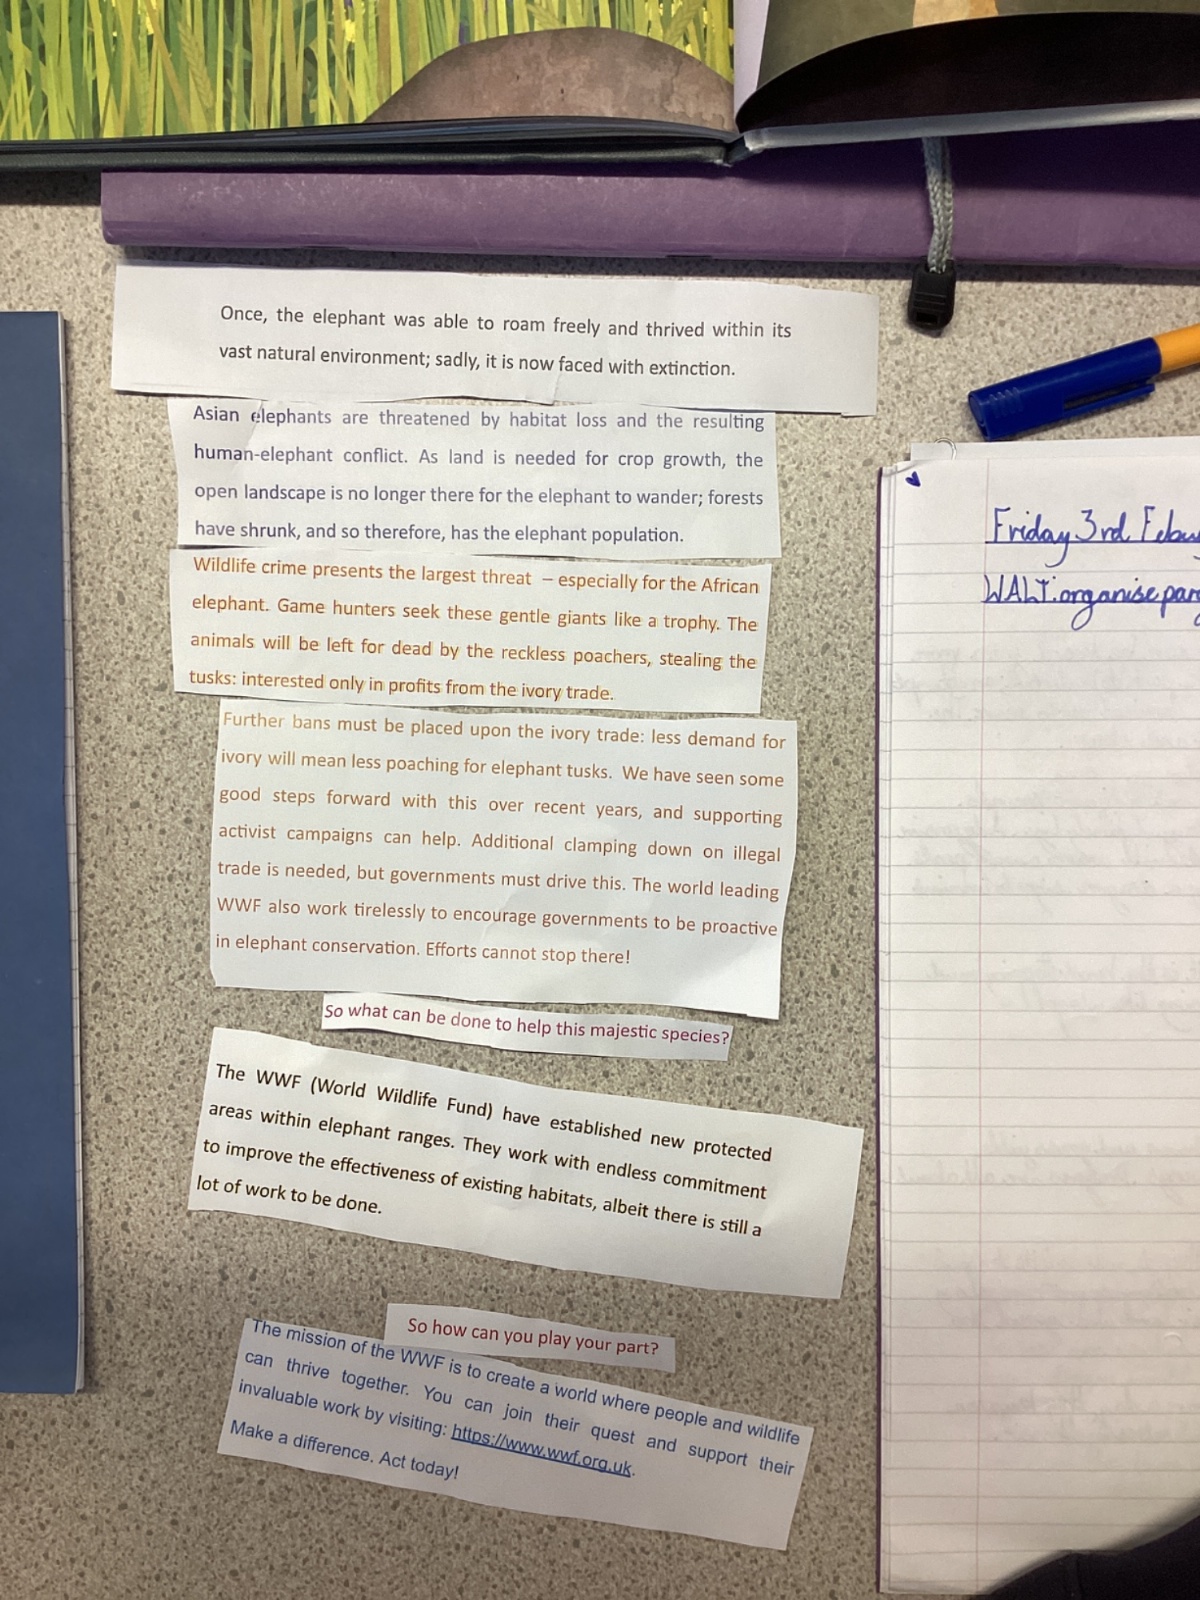 Once, the elephant was able to roam freely and thrived within its
vast natural environment; sadly, it is now faced with extinction.
Asian elephants are threatened by habitat loss and the resulting
human-elephant conflict. As land is needed for crop growth, the
open landscape is no longer there for the elephant to wander; forests
have shrunk, and so therefore, has the elephant population.
Wildlife crime presents the largest threat – especially for the African
elephant. Game hunters seek these gentle giants like a trophy. The
animals will be left for dead by the reckless poachers, stealing the
tusks: interested only in profits from the ivory trade.
Further bans must be placed upon the ivory trade: less demand for
ivory will mean less poaching for elephant tusks. We have seen some
good steps forward with this over recent years, and supporting
activist campaigns can help. Additional clamping down on illegal
trade is needed, but governments must drive this. The world leading
WWF also work tirelessly to encourage governments to be proactive
in elephant conservation. Efforts cannot stop there!
So what can be done to help this majestic species?
The WWF (World Wildlife Fund) have established new protected
areas within elephant ranges. They work with endless commitment
to improve the effectiveness of existing habitats, albeit there is still a
lot of work to be done.
So how can you play your part?
The mission of the WWF is to create a world where people and wildlife
can thrive together. You can join their quest and support their
invaluable work by visiting: https://www.wwf.org.uk.
Make a difference. Act today!
Friday 3rd
WALT: organise